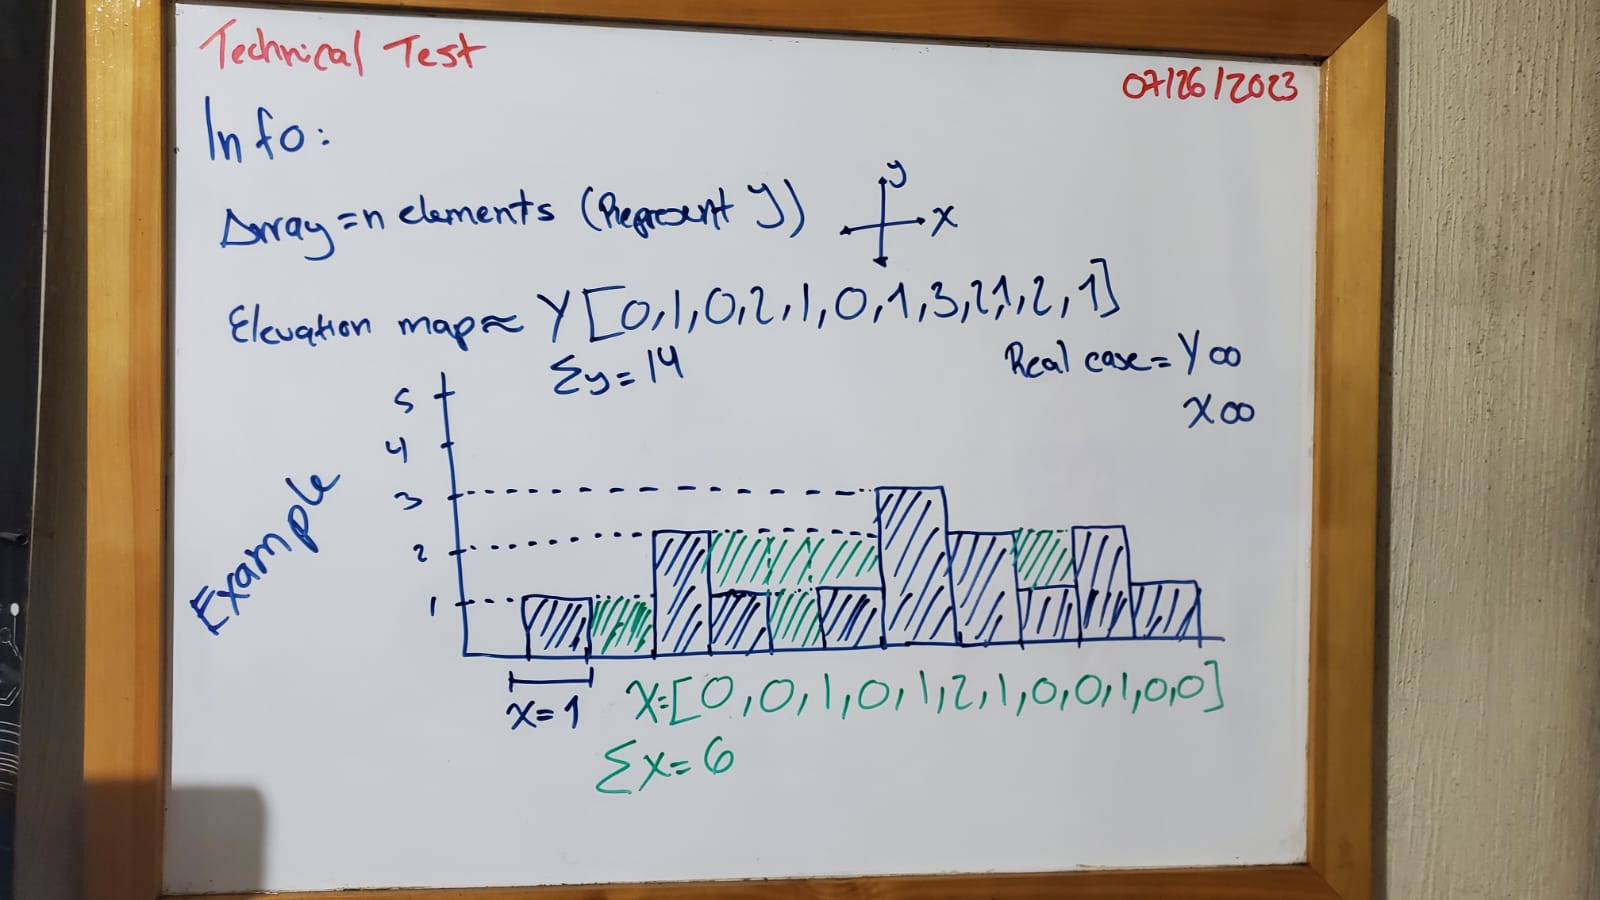 Technical Test
07/26/2023
Info:
Array = n elements (Represent y)
y
x
Elevation map ≈ Y [0,1,0,2,1,0,1,3,2,1,2,1]
Σy = 14
Real case = Y ∞
X ∞
Example
5
4
3
2
1
x = 1
X=[0,0,1,0,1,2,1,0,0,1,0,0]
Σx = 6